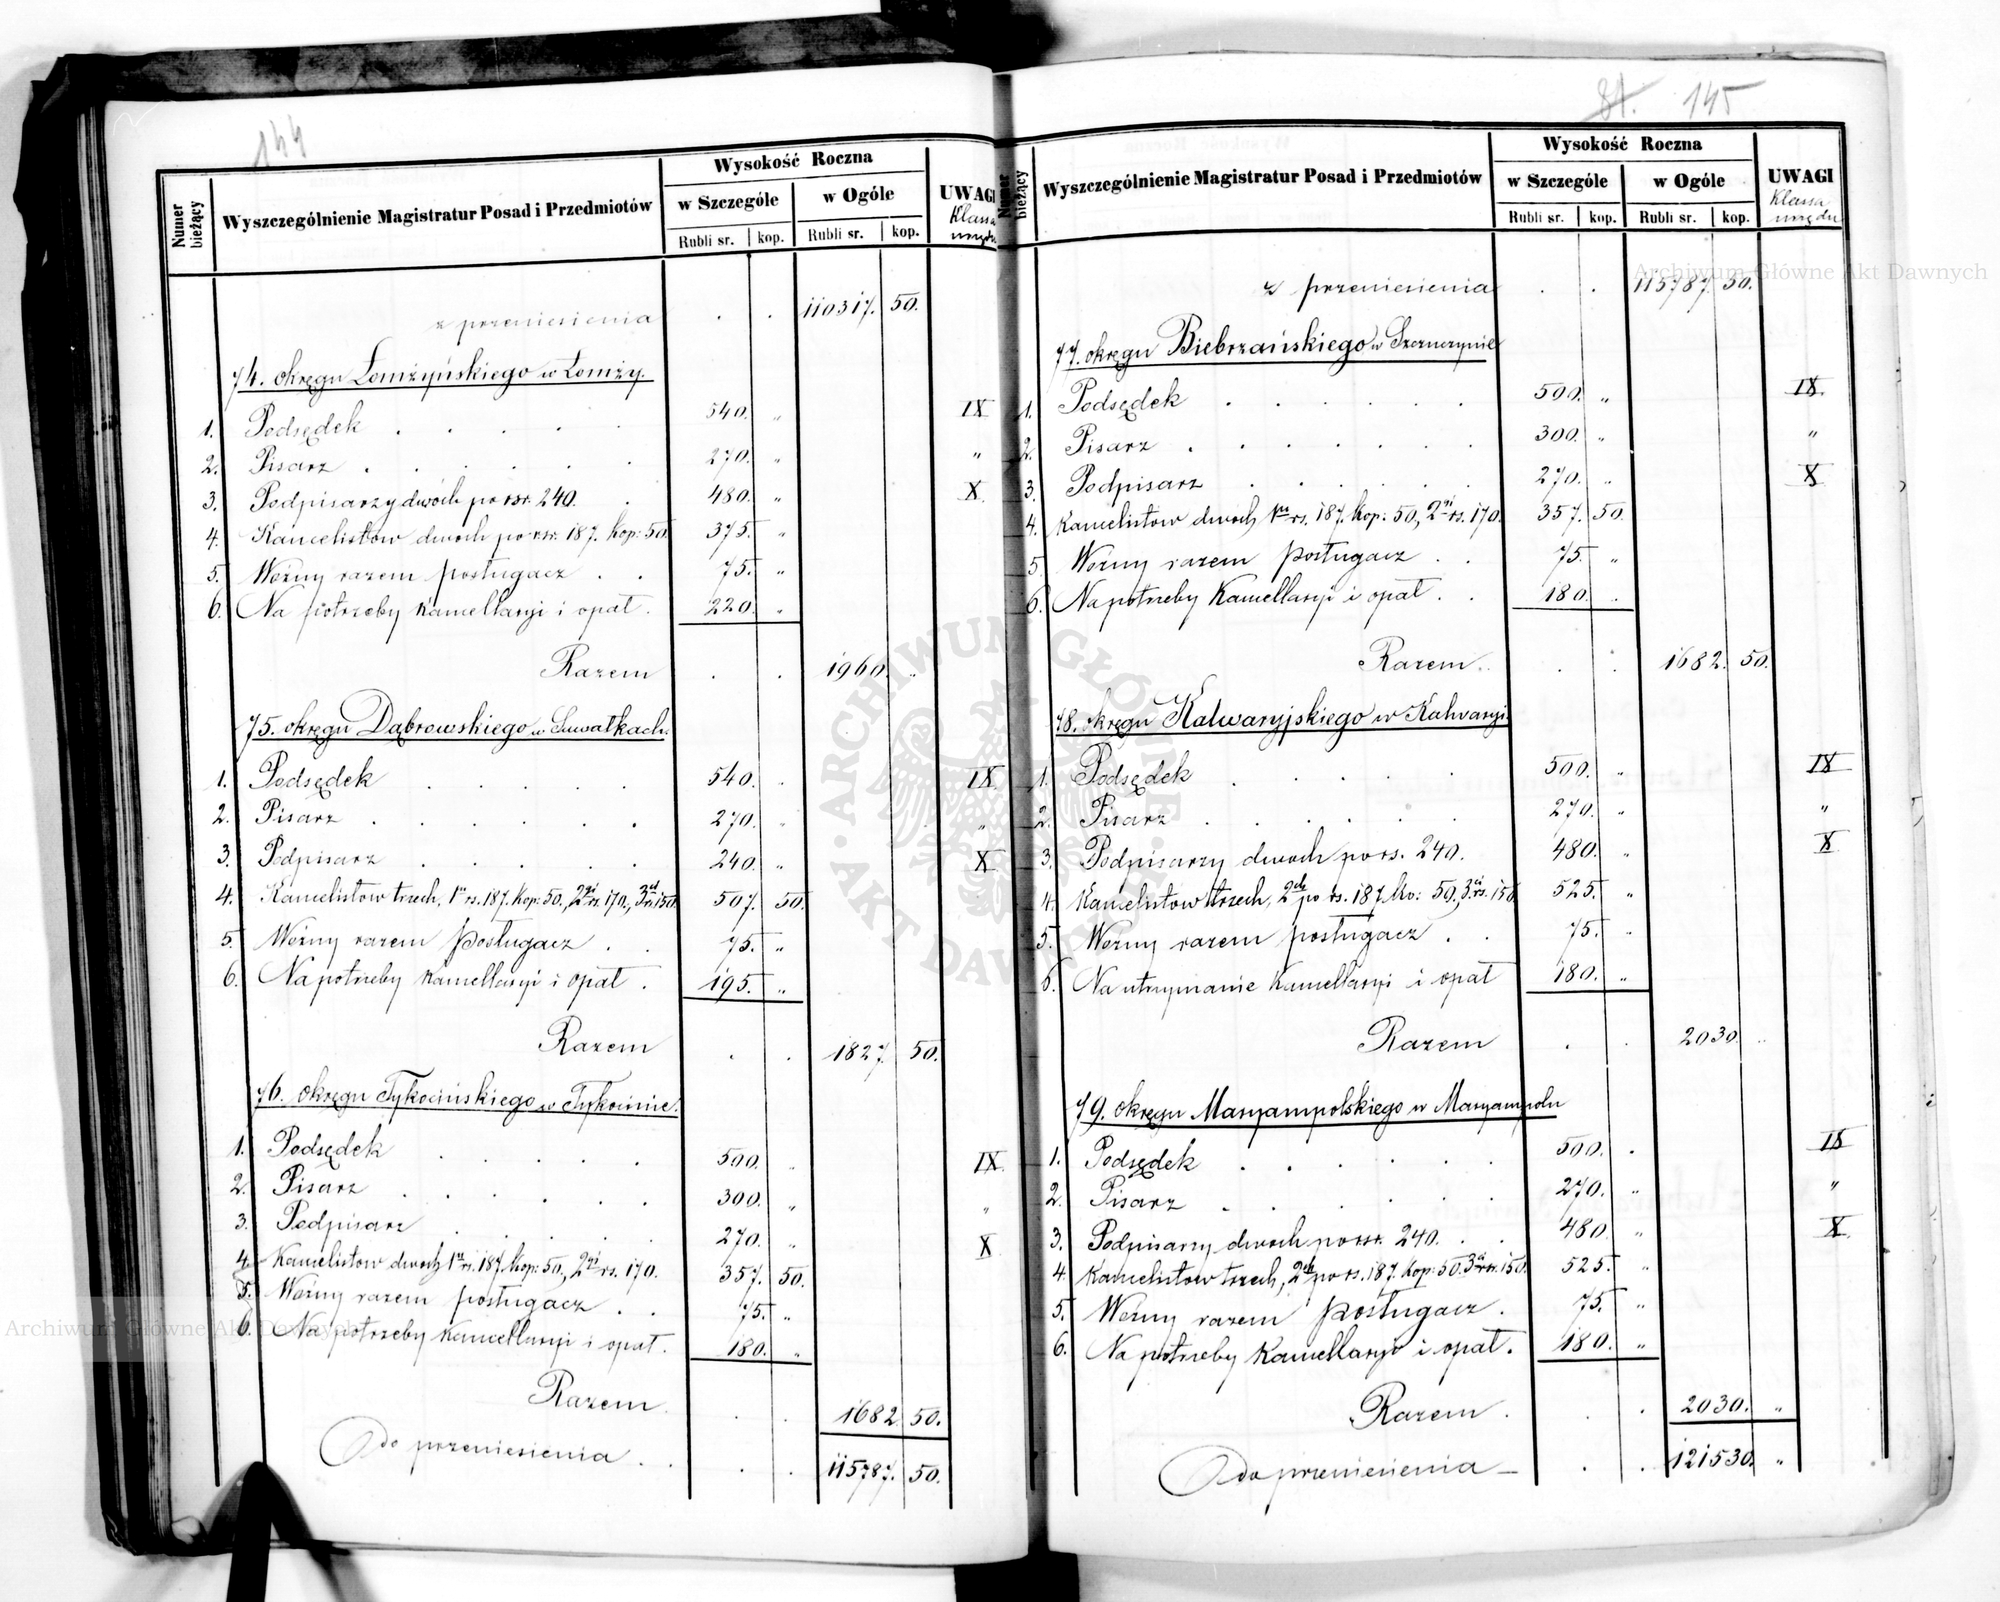 144
Numer bieżący
Wyszczególnienie Magistratur Posad i Przedmiotów
Wysokość Roczna
w Szczególe
w Ogóle
Rubli sr.
kop.
Rubli sr.
kop.
UWAGI
Klassa urzędu
z przeniesienia . . 110317. 50.
74. okręgu Łomżyńskiego w Łomży.
1. Podsędek . . . . . 540. „ IX
2. Pisarz . . . . . 270. „ „
3. Podpisarzy dwóch po rsr. 240. . 480. „ X
4. Kancelistów dwóch po rsr. 187. Kop: 50. 375. „
5. Woźny razem posługacz . . 75. „
6. Na potrzeby Kancellaryi i opał . 220. „
Razem . . 1960. „
75. okręgu Dąbrowskiego w Suwałkach.
1. Podsędek . . . . . 540. „ IX
2. Pisarz . . . . . . 270. „ „
3. Podpisarz . . . . . 240. „ X
4. Kancelistów trzech, 1n rs. 187. Kop: 50., 2gi rs. 170., 3ci rs. 150. 507. 50.
5. Woźny razem posługacz . . 75. „
6. Na potrzeby Kancellaryi i opał . 195. „
Razem . . 1827. 50.
76. okręgu Tykocińskiego w Tykocinie.
1. Podsędek . . . . . 500. „ IX
2. Pisarz . . . . . . 300. „ „
3. Podpisarz . . . . . 270. „ X
4. Kancelistów dwóch, 1n rs. 187. Kop: 50., 2gi rs. 170. 357. 50.
5. Woźny razem posługacz . . 75. „
6. Na potrzeby Kancellaryi i opał . 180. „
Razem . . 1682 50.
Do przeniesienia . . . . 115787. 50.
81. 145
Numer bieżący
Wyszczególnienie Magistratur Posad i Przedmiotów
Wysokość Roczna
w Szczególe
w Ogóle
Rubli sr.
kop.
Rubli sr.
kop.
UWAGI
Klassa urzędu
z przeniesienia . . 115787. 50.
77. okręgu Biebrzańskiego w Szczuczynie
1. Podsędek . . . . . . 500. „ IX
2. Pisarz . . . . . . 300. „ „
3. Podpisarz . . . . . . 270. „ X
4. Kancelistów dwóch 1n rs. 187. Kop: 50., 2gi rs. 170. 357. 50.
5. Woźny razem posługacz . . 75. „
6. Na potrzeby Kancellaryi i opał . . 180. „
Razem . . . 1682. 50.
78. okręgu Kalwaryjskiego w Kalwaryi.
1. Podsędek . . . . . 500. „ IX
2. Pisarz . . . . . . 270. „ „
3. Podpisarzy dwóch po rs. 240. 480. „ X
4. Kancelistów trzech, 2ch po rs. 187. Ko: 50., 3ci rs. 150. 525. „
5. Woźny razem posługacz . . 75. „
6. Na utrzymanie Kancellaryi i opał 180. „
Razem . . 2030. „
79. okręgu Maryampolskiego w Maryampolu
1. Podsędek . . . . . . 500. „ IX
2. Pisarz . . . . . 270. „ „
3. Podpisarzy dwóch po rsr. 240. . . 480. „ X
4. Kancelistów trzech, 2ch po rs. 187. Kop: 50. 3ci rs. 150. 525. „
5. Woźny razem posługacz . 75. „
6. Na potrzeby Kancellaryi i opał . 180. „
Razem . . . 2030. „
Do przeniesienia — . . 121530. „
Archiwum Główne Akt Dawnych
Archiwum Główne Akt Dawnych
ARCHIWUM GŁÓWNE · AKT DAWNYCH ·